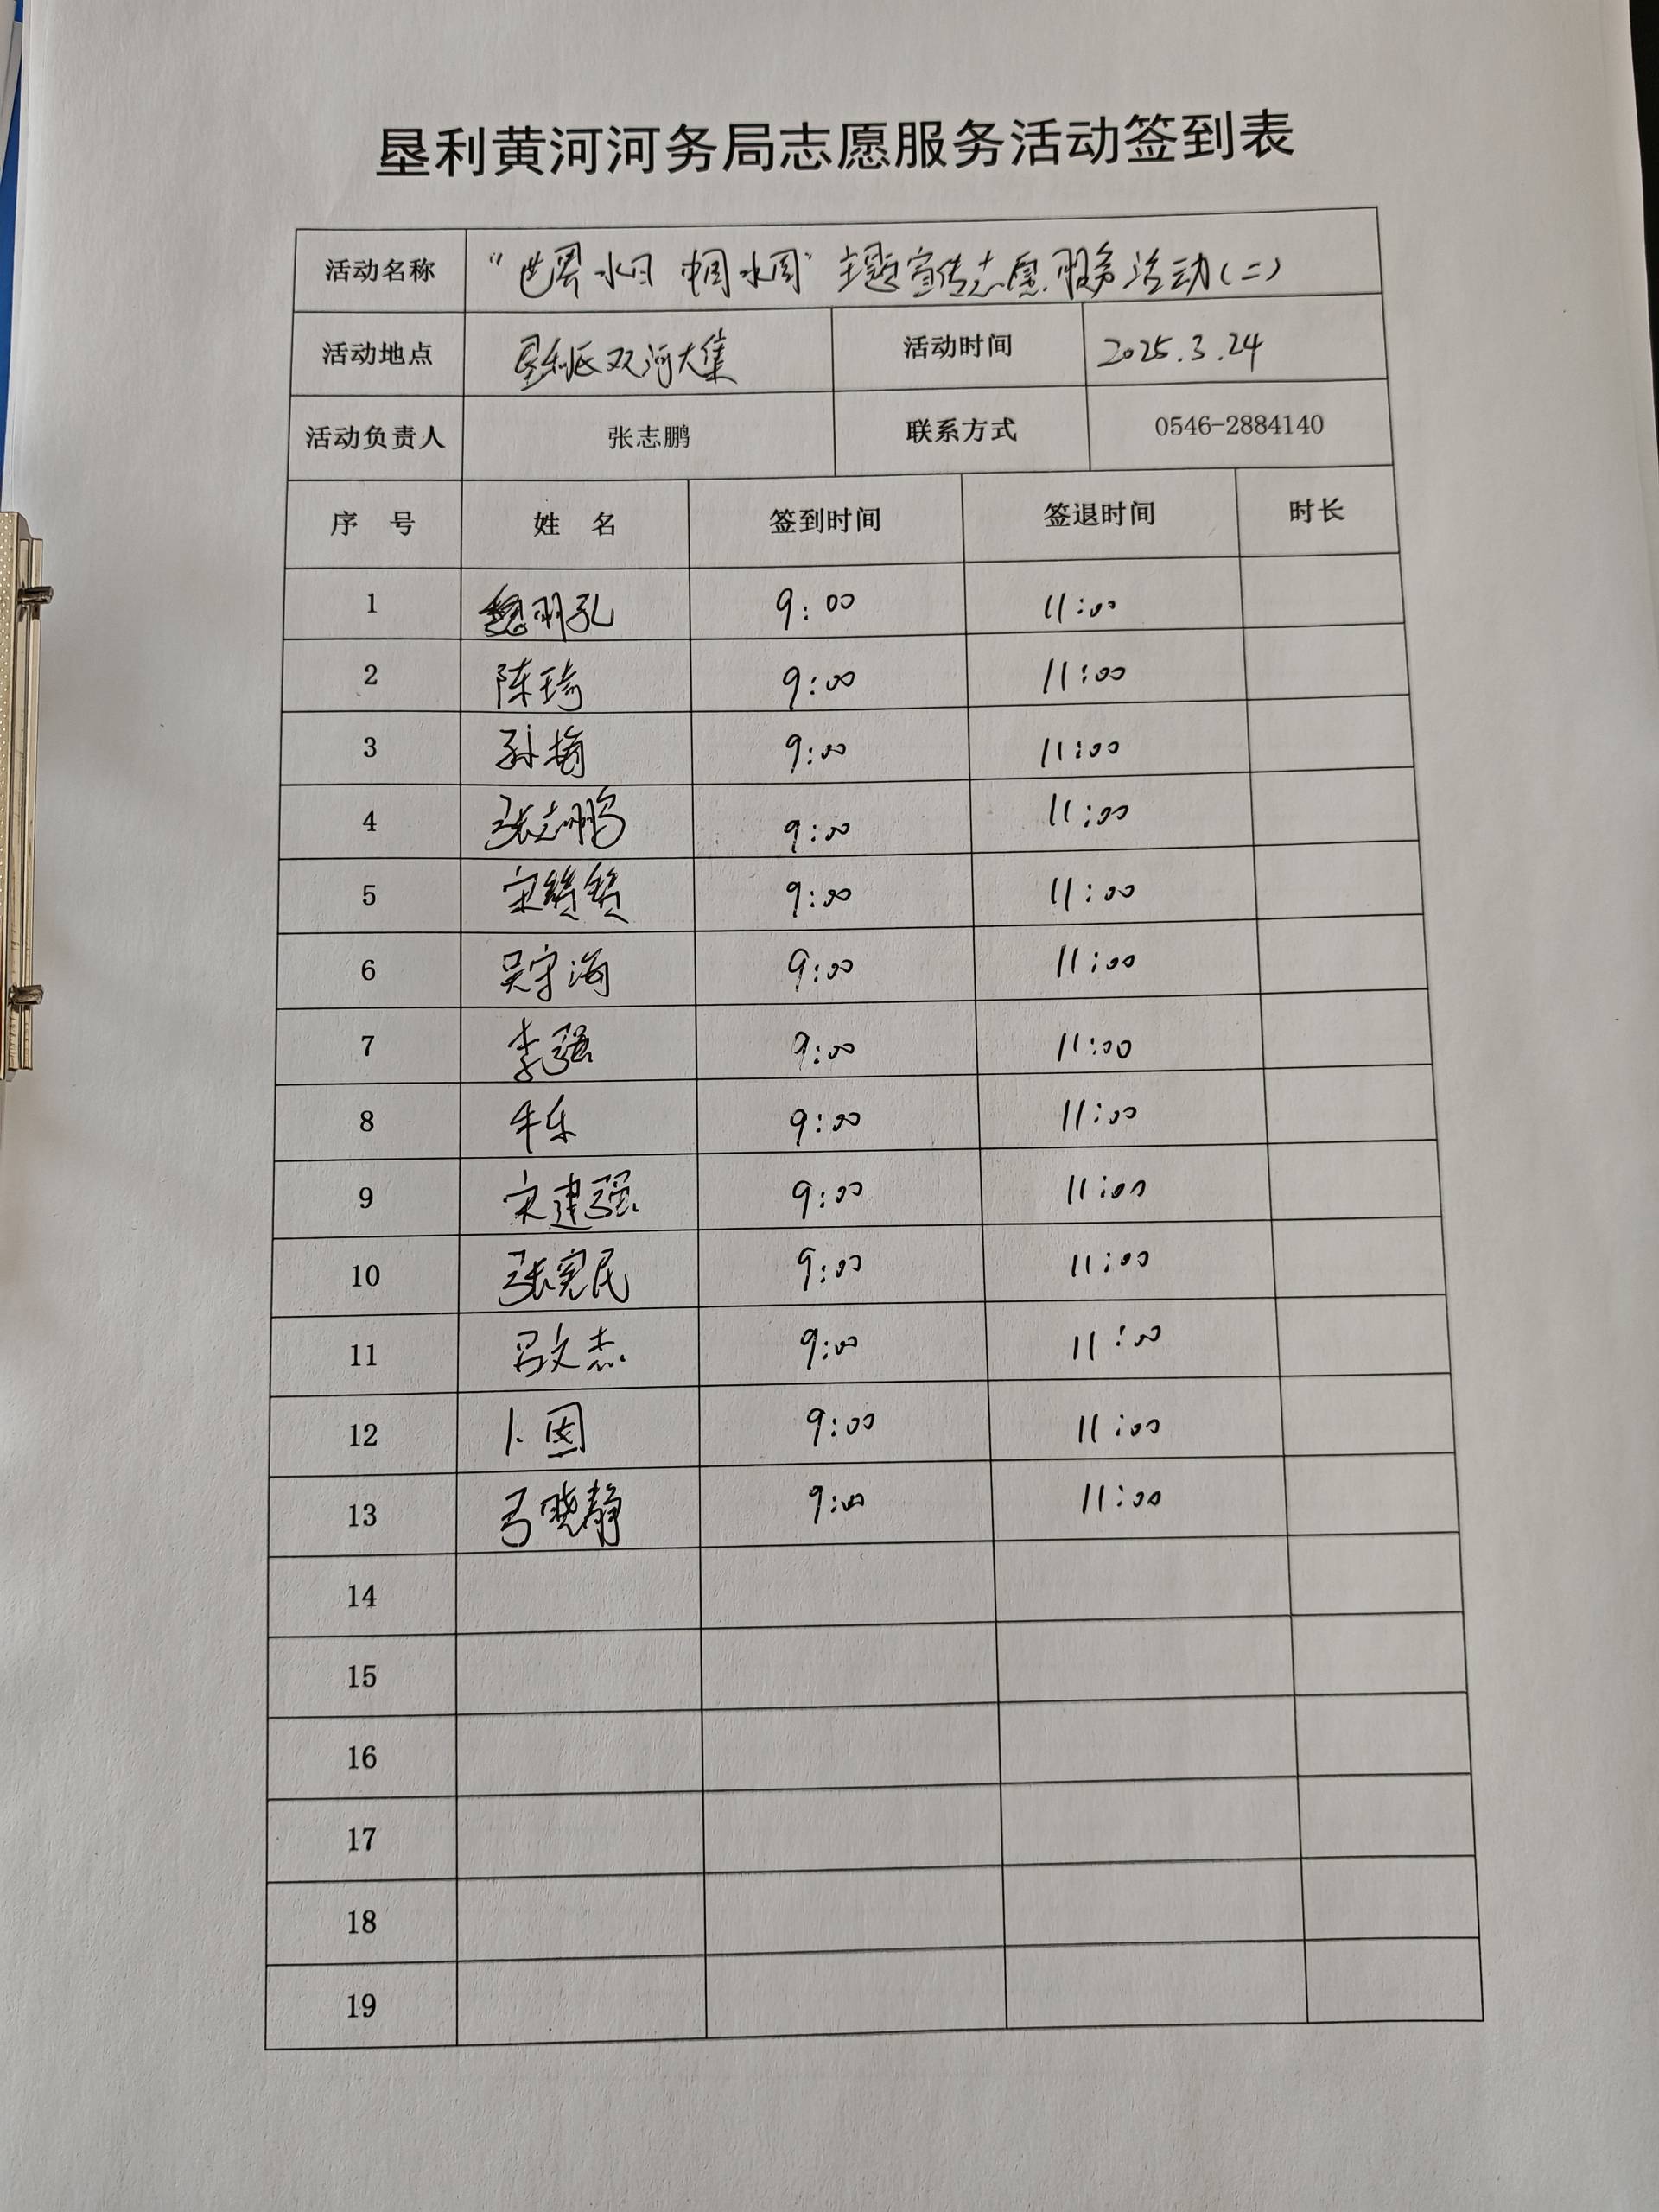 垦利黄河河务局志愿服务活动签到表
活动名称 “世界水日 中国水周”主题宣传志愿服务活动(二)
活动地点 垦利区双河大集 活动时间 2025.3.24
活动负责人 张志鹏 联系方式 0546-2884140
序 号 姓 名 签到时间 签退时间 时长
1 9:00 11:00
2 陈琦 9:00 11:00
3 孙梅 9:00 11:00
4 张志鹏 9:00 11:00
5 宋赟赟 9:00 11:00
6 吴守海 9:00 11:00
7 李强 9:00 11:00
8 牛乐 9:00 11:00
9 宋建强 9:00 11:00
10 张宪民 9:00 11:00
11 吕文杰 9:00 11:00
12 卜囡 9:00 11:00
13 弓晓静 9:00 11:00
14
15
16
17
18
19